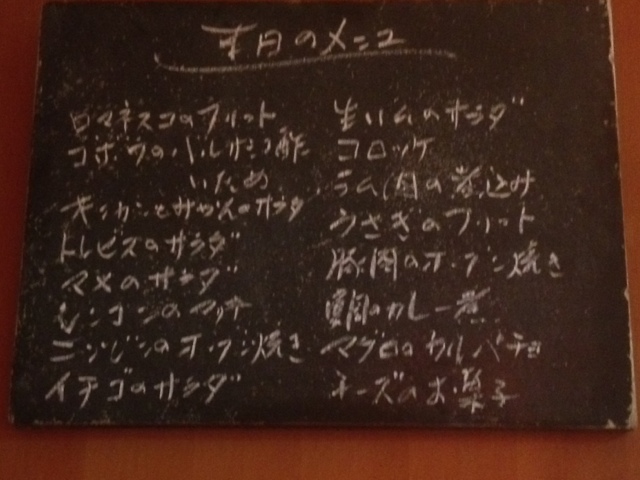 本日のメニュー
ロマネスコのフリット
ゴボウのバルサミコ酢
いため
キンカンとみかんのサラダ
トレビスのサラダ
マメのサラダ
ニンジンのオーブン焼き
イチゴのサラダ
生ハムのサラダ
コロッケ
ラム肉の煮込み
うさぎのフリット
豚肉のオーブン焼き
鯛のカレー煮
マグロのカルパチョ
チーズのお菓子